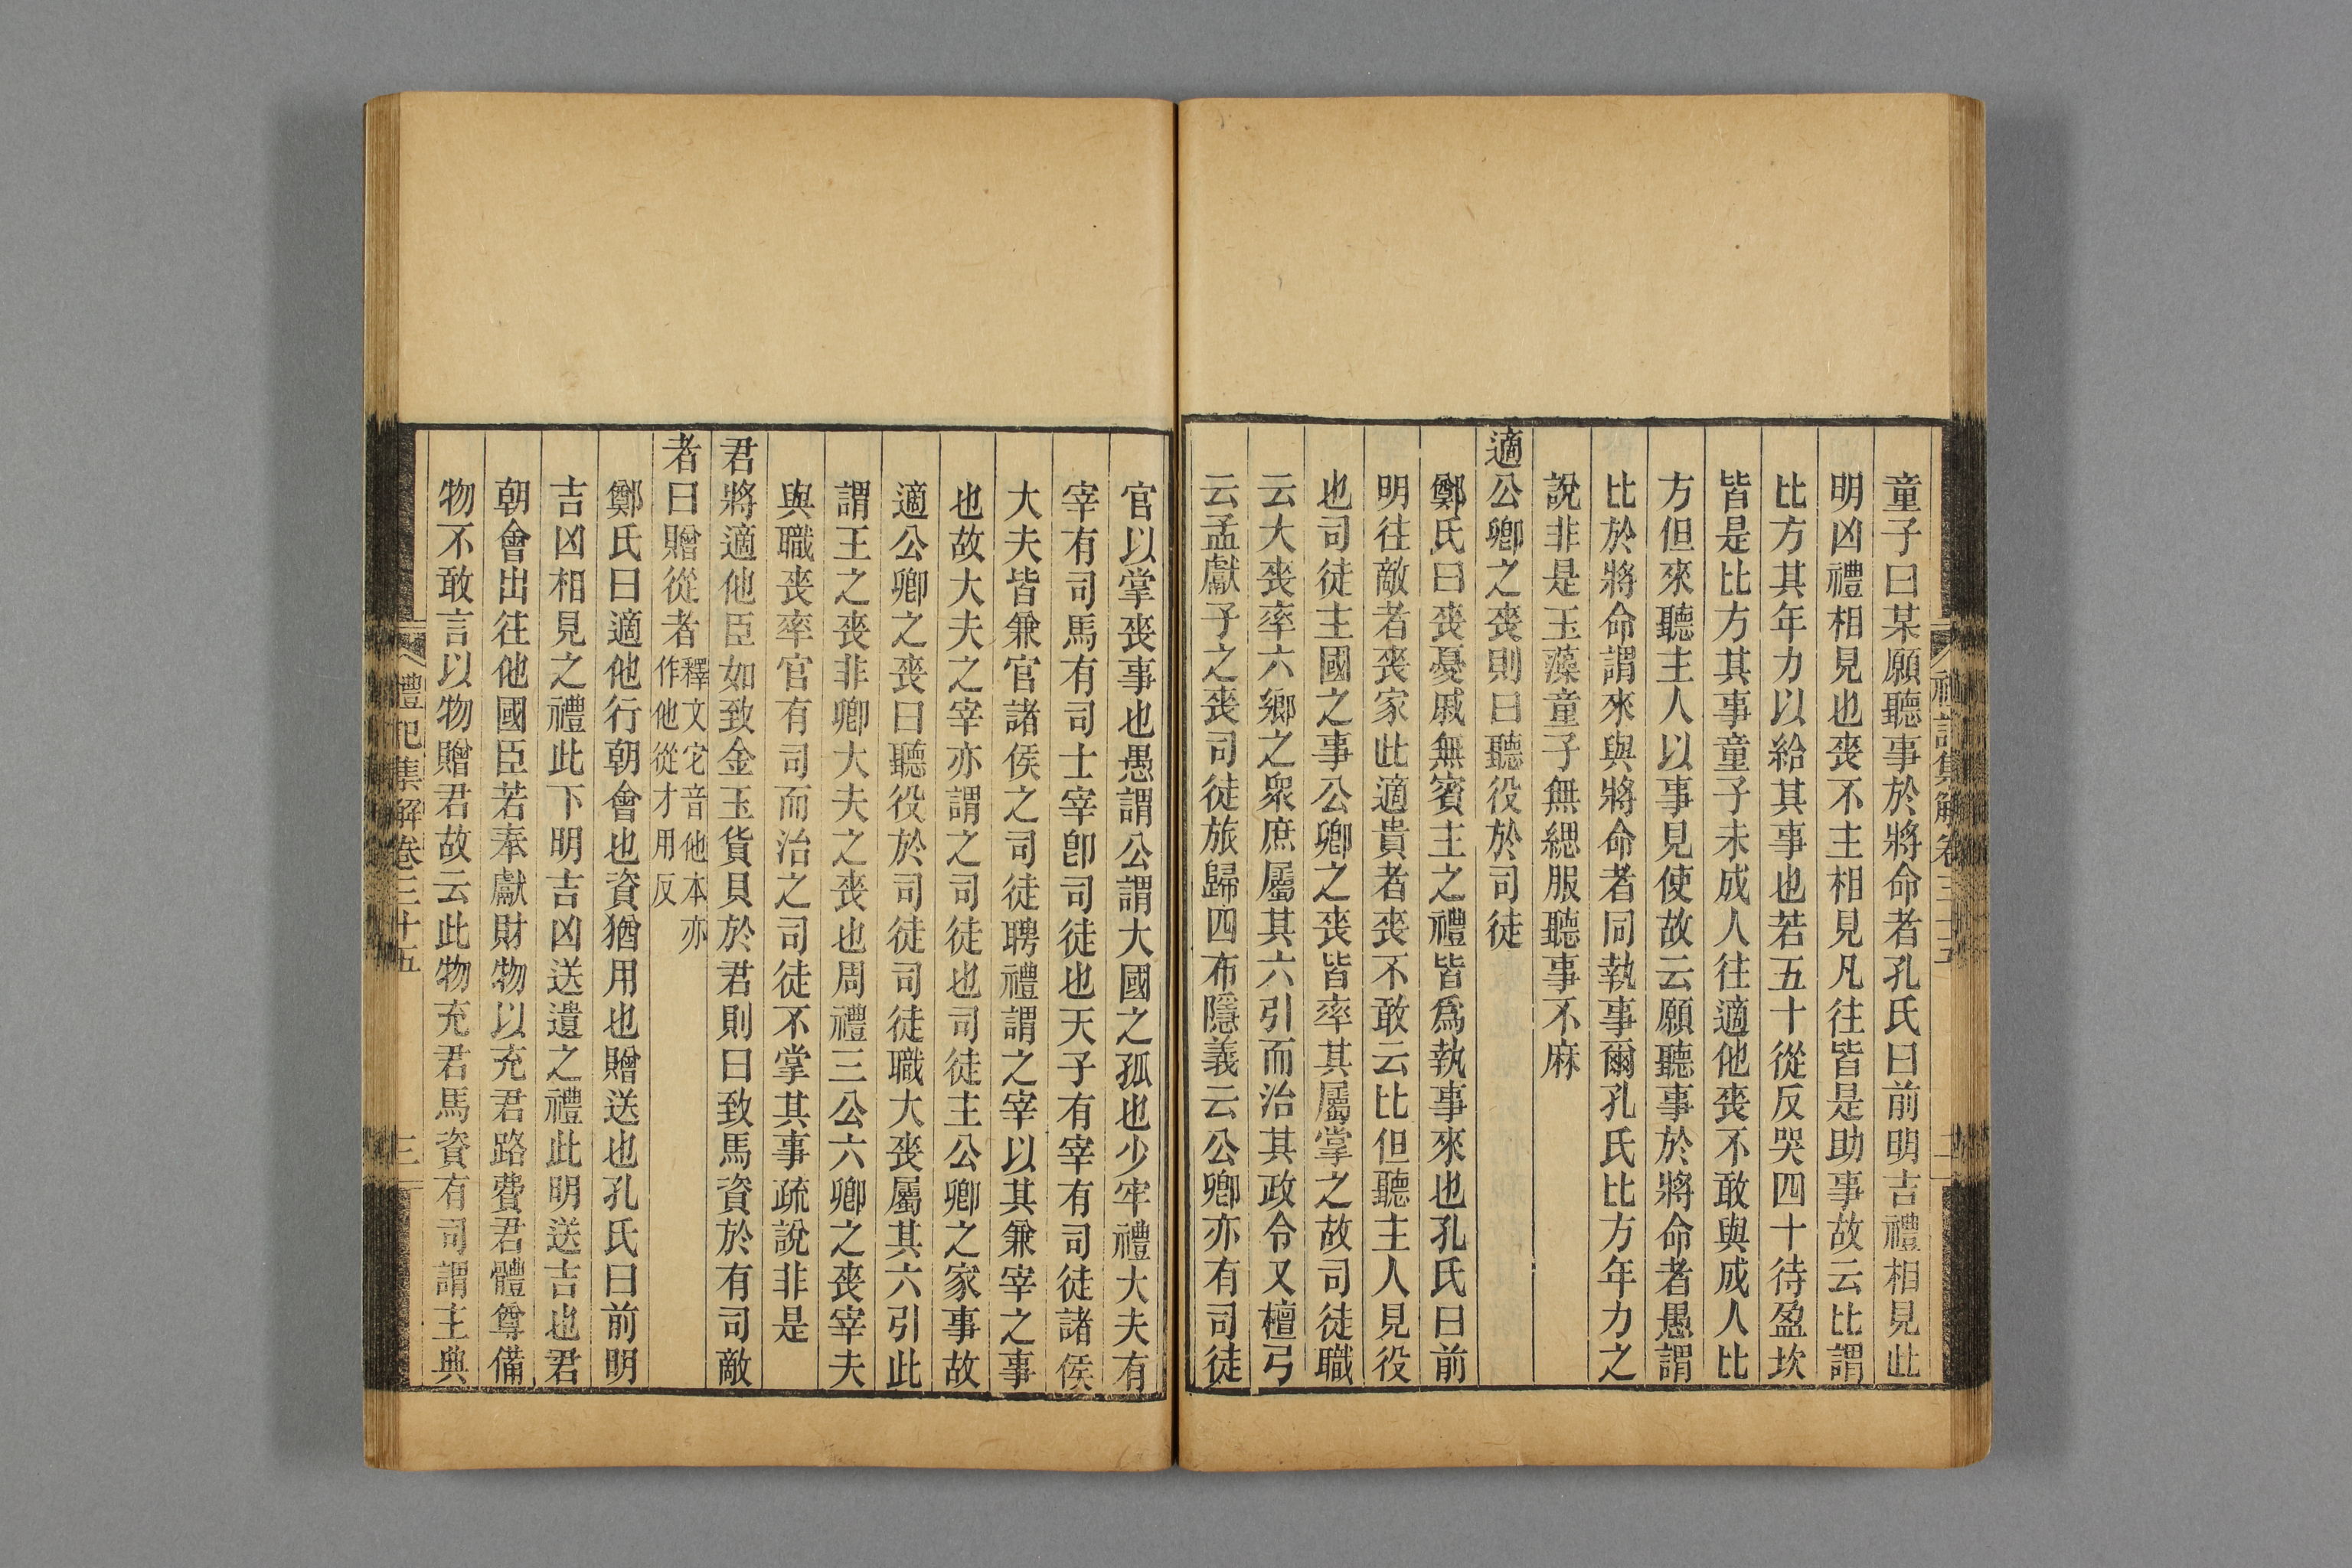 禮記集解卷三十五
二
童子曰某願聽事於將命者孔氏曰前明吉禮相見此
明凶禮相見也喪不主相見凡往皆是助事故云比謂
比方其年力以給其事也若五十從反哭四十待盈坎
皆是比方其事童子未成人往適他喪不敢與成人比
方但來聽主人以事見使故云願聽事於將命者愚謂
比於將命謂來與將命者同執事爾孔氏比方年力之
說非是玉藻童子無緦服聽事不麻
適公卿之喪則曰聽役於司徒
鄭氏曰喪憂戚無賓主之禮皆爲執事來也孔氏曰前
明往敵者喪家此適貴者喪不敢云比但聽主人見役
也司徒主國之事公卿之喪皆率其屬掌之故司徒職
云大喪率六鄉之衆庶屬其六引而治其政令又檀弓
云孟獻子之喪司徒旅歸四布隱義云公卿亦有司徒
官以掌喪事也愚謂公謂大國之孤也少牢禮大夫有
宰有司馬有司士宰卽司徒也天子有宰有司徒諸侯
大夫皆兼官諸侯之司徒聘禮謂之宰以其兼宰之事
也故大夫之宰亦謂之司徒也司徒主公卿之家事故
適公卿之喪曰聽役於司徒司徒職大喪屬其六引此
謂王之喪非卿大夫之喪也周禮三公六卿之喪宰夫
與職喪率官有司而治之司徒不掌其事疏說非是
君將適他臣如致金玉貨貝於君則曰致馬資於有司敵
者曰贈從者釋文它音他本亦作他從才用反
鄭氏曰適他行朝會也資猶用也贈送也孔氏曰前明
吉凶相見之禮此下明吉凶送遺之禮此明送吉也君
朝會出往他國臣若奉獻財物以充君路費君體尊備
物不敢言以物贈君故云此物充君馬資有司謂主典
禮記集解卷三十五
三